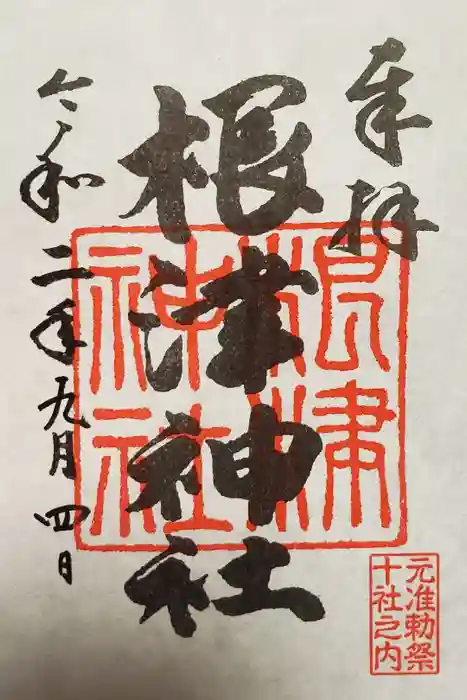 奉拝
根津神社
根津
神社
元准勅祭
十社之内
令和二年九月四日